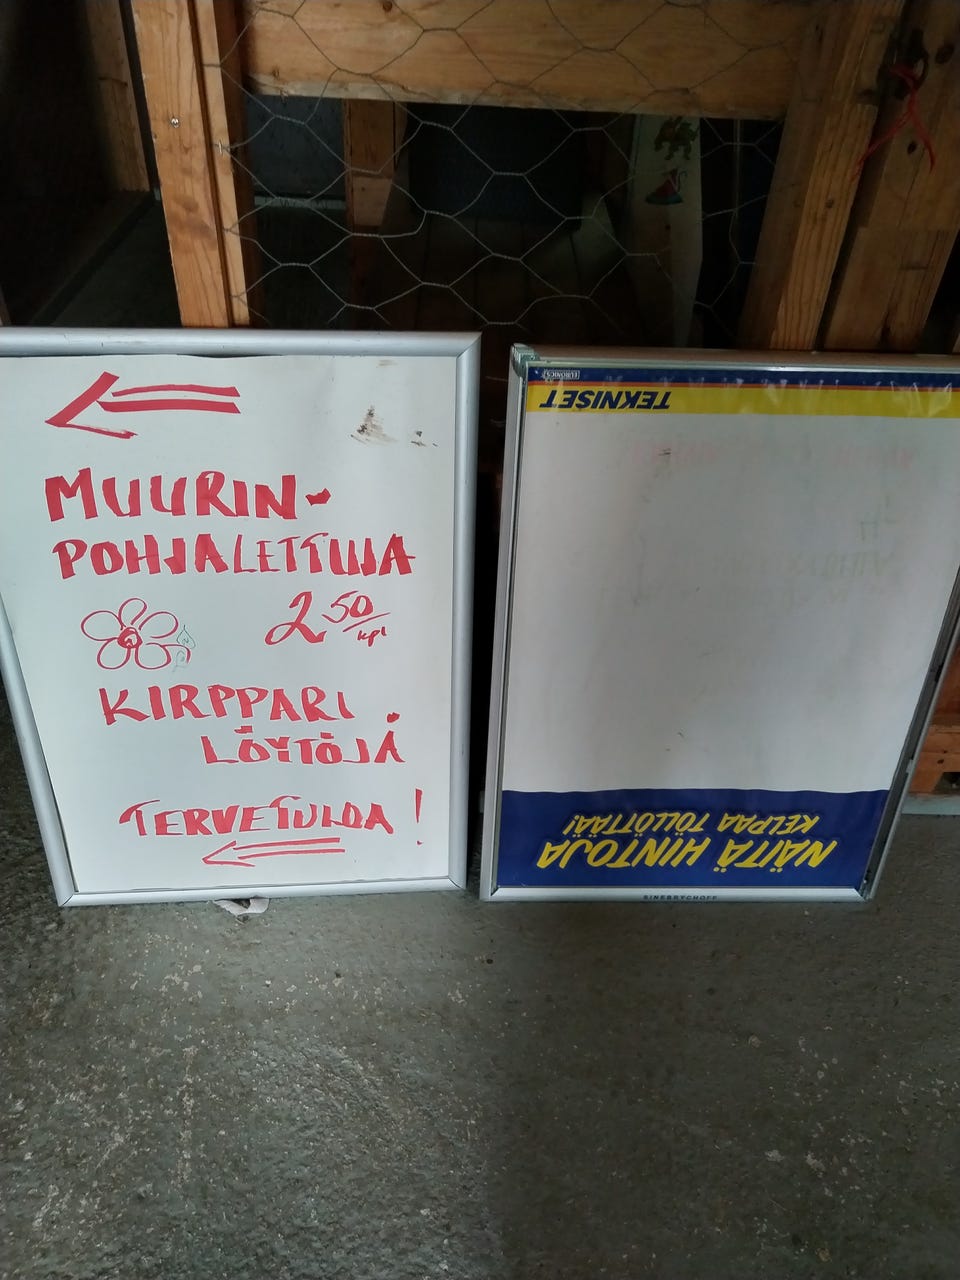 MUURIN-
POHJALETTUJA
2 50/kpl
KIRPPARI
LÖYTÖJÄ
TERVETULOA!
EURONICS
TEKNISET
NÄITÄ HINTOJA
KELPAA TÖLLÖTTÄÄ!
SINEBRYCHOFF